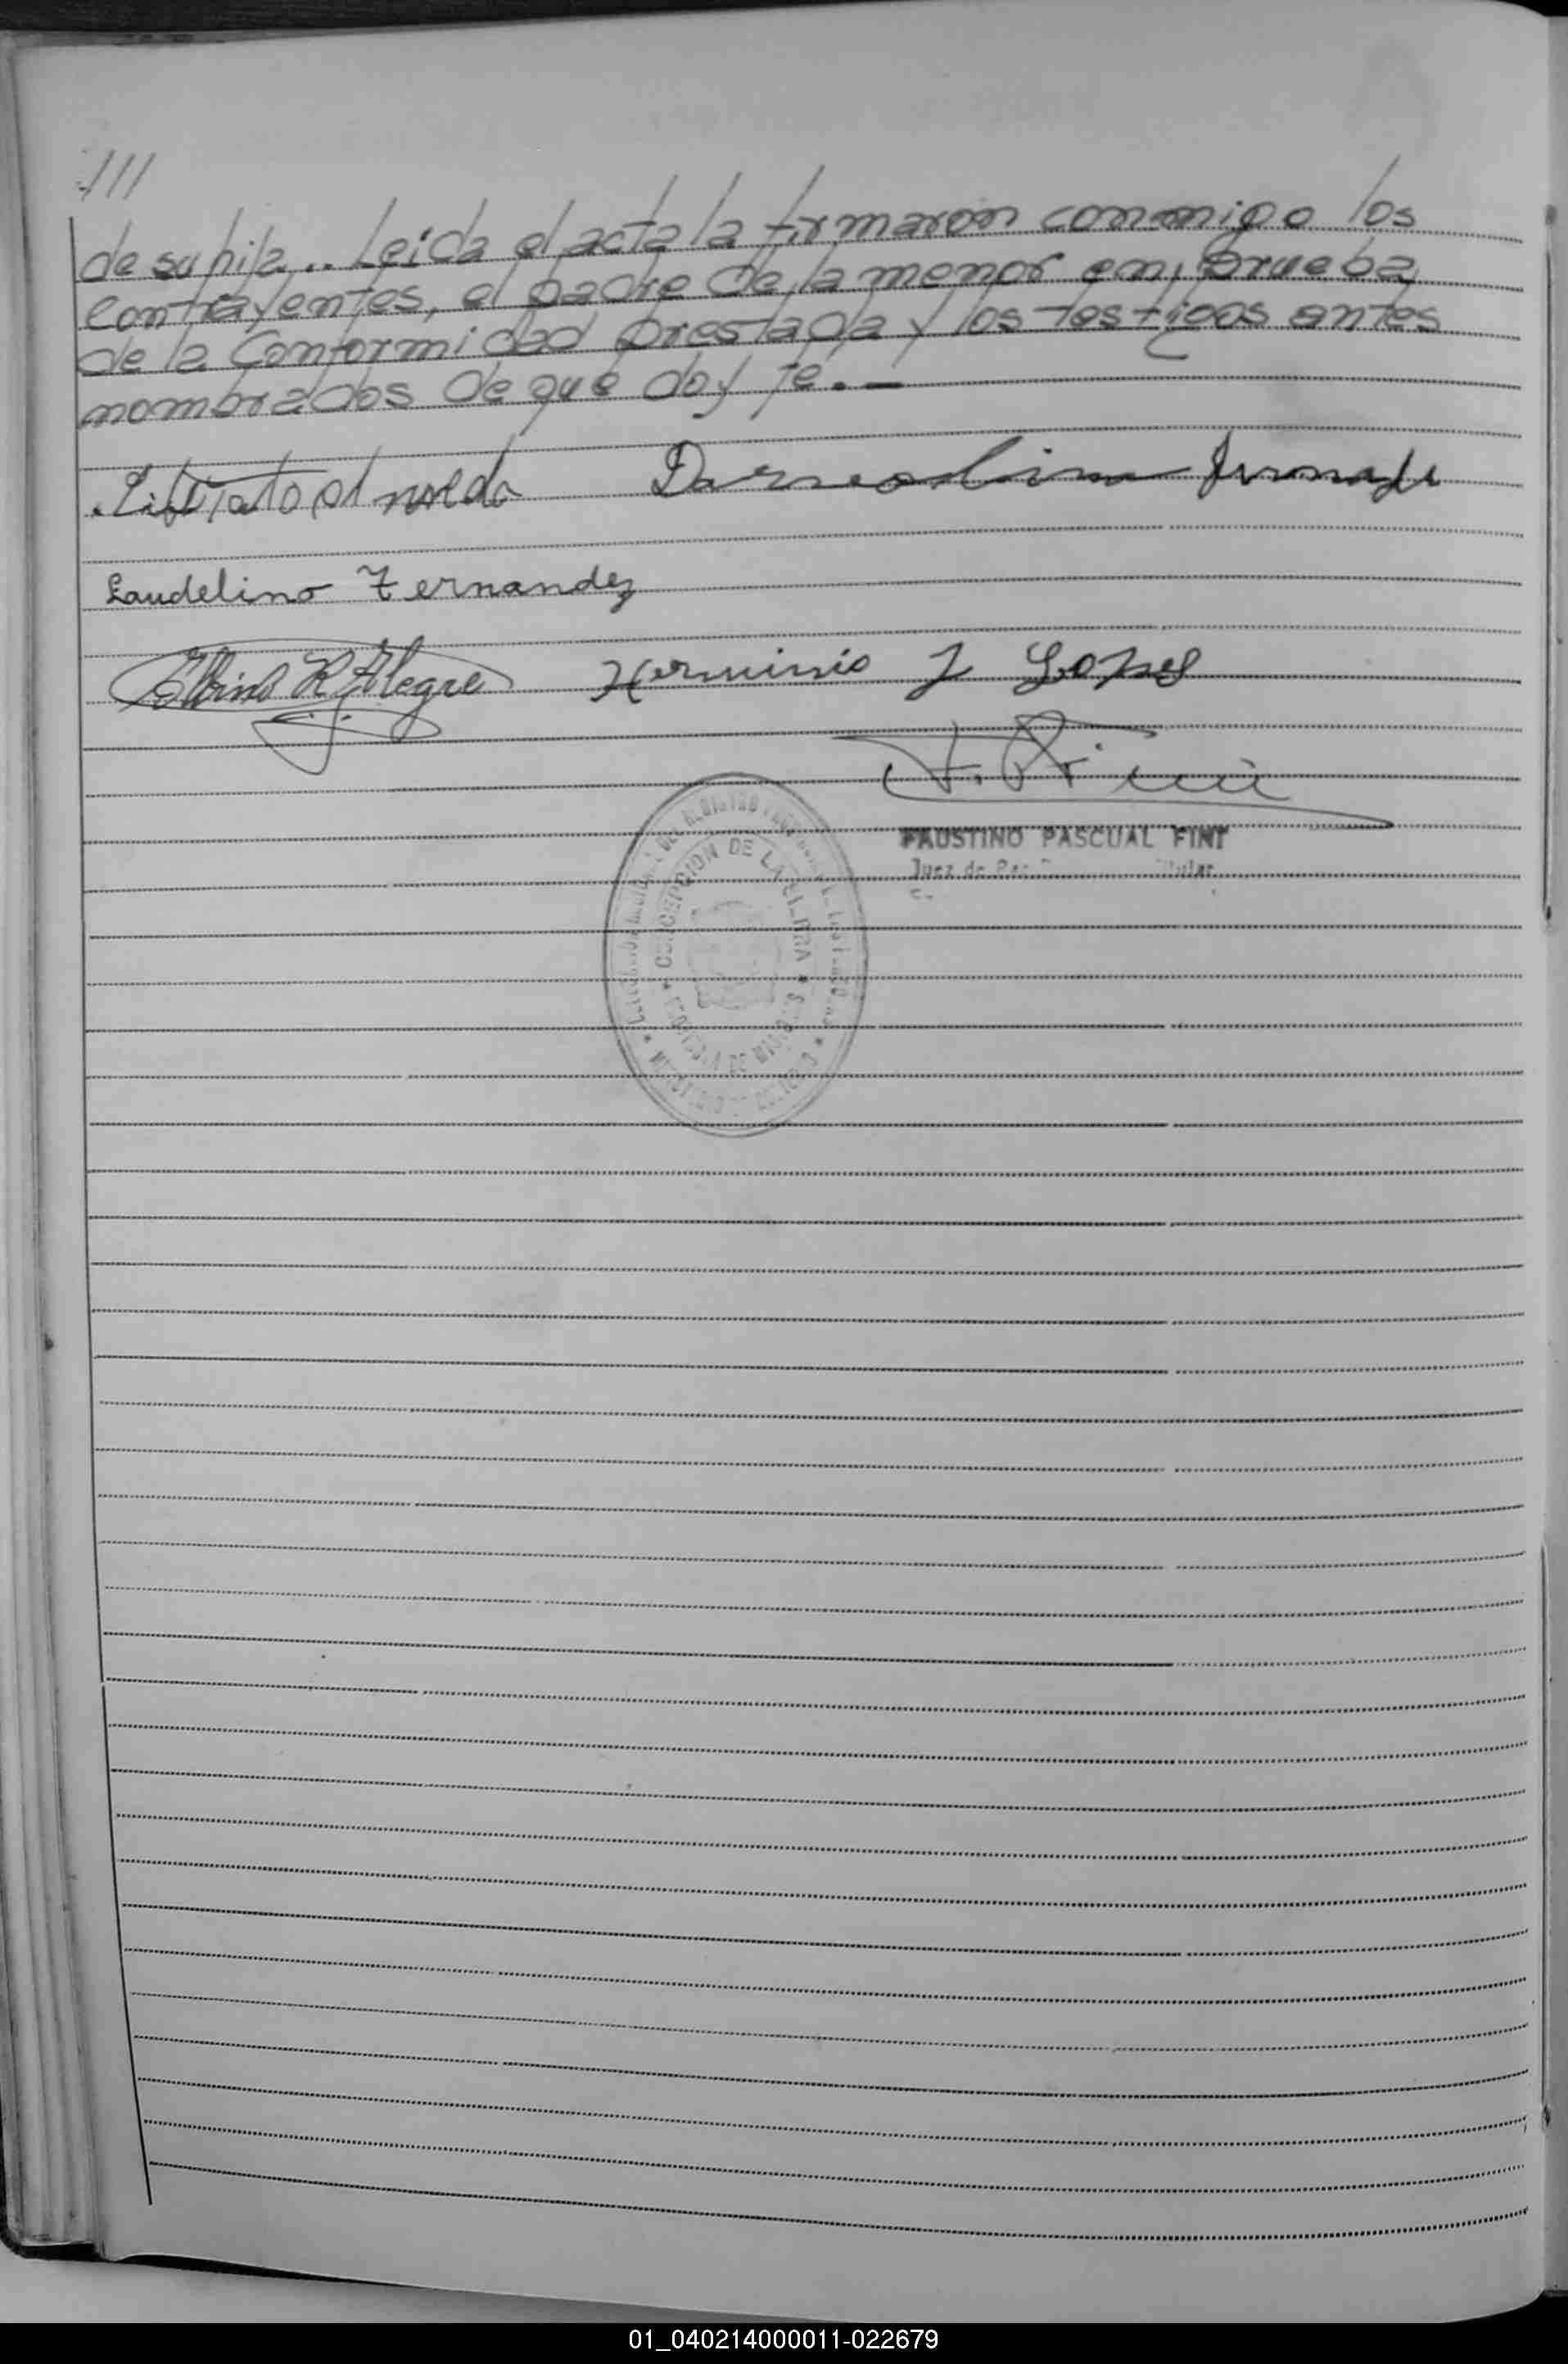 ///
de su hija.. Leida el acta la firmaron conmigo los
contrayentes, el padre de la menor en prueba
de la Conformidad prestada y los testigos antes
nombrados de que doy fe. —
Arnoldo
Laudelino Fernandez
R Alegre Herminio J Lopez
FAUSTINO PASCUAL FINI
Juez de Paz Titular
CONCEPCION DE LA SIERRA
01_040214000011-022679